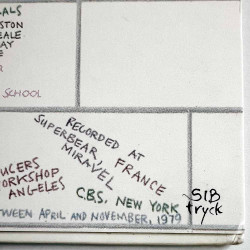 ALS
STON
EALE
AY
E
R
SCHOOL
RECORDED AT
SUPERBEAR, FRANCE
MIRAVEL
UCERS
ORKSHOP
ANGELES
C.B.S. NEW YORK
TWEEN APRIL AND NOVEMBER, 1979
SIB
tryck